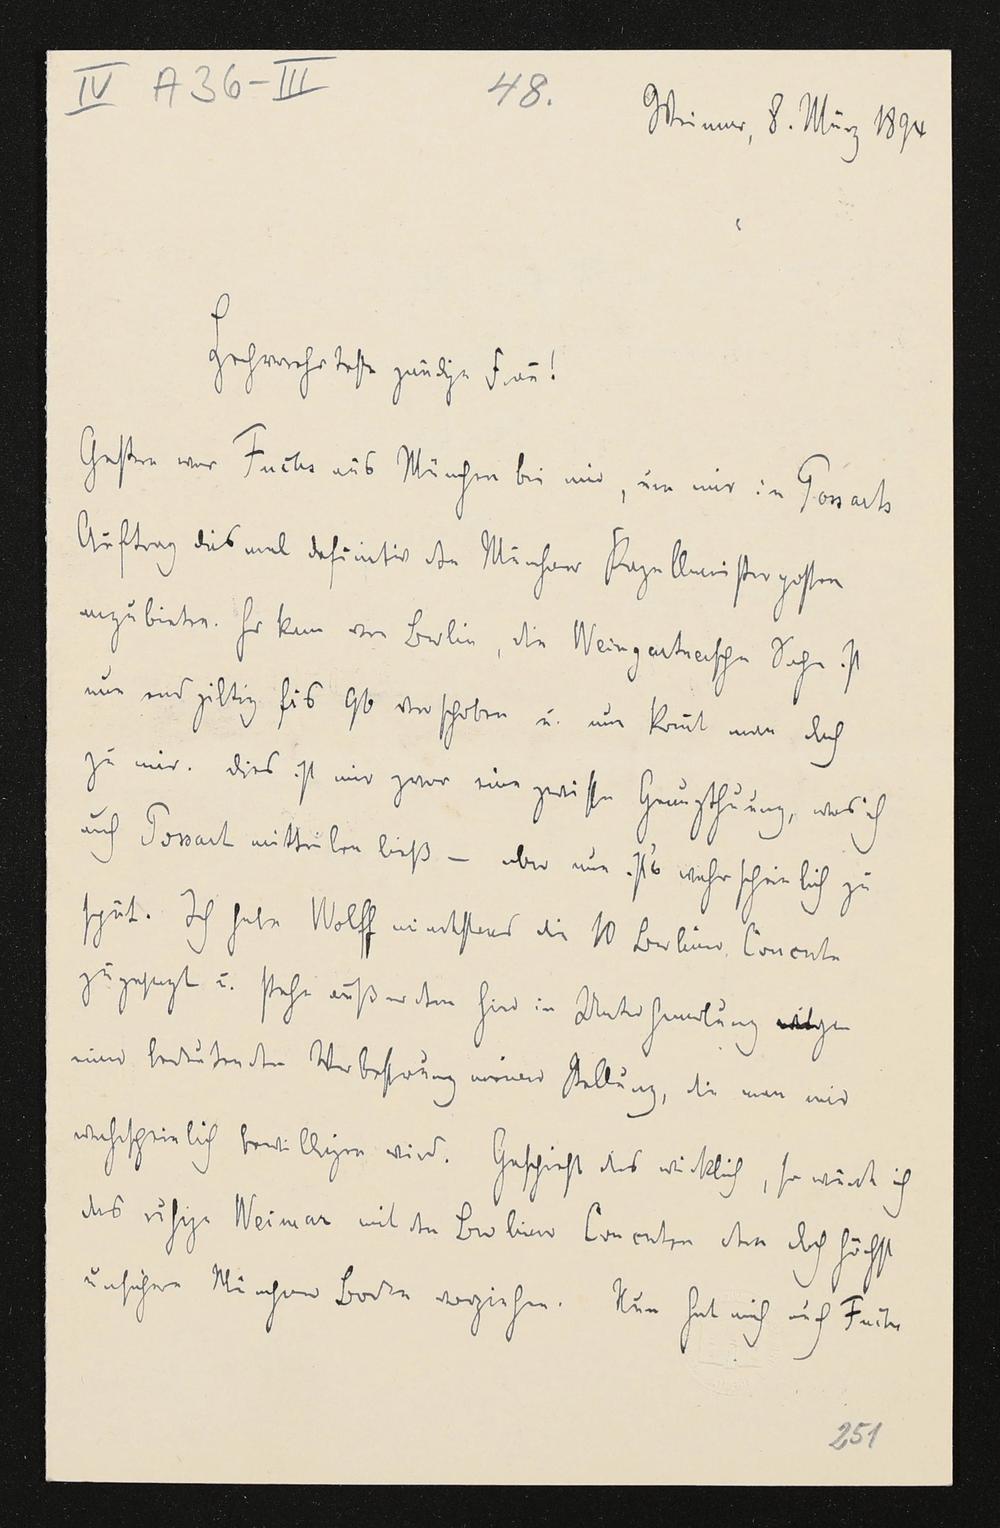 IV A 36-III
48.
Weimar, 8. März 1894
Hochverehrteste gnädige Frau!
Gestern war Fuchs aus München bei mir, um mir in Possarts
Auftrag diesmal definitiv den Münchner Kapellmeisterposten
anzubieten. Er kam von Berlin, die Weingartnersche Sache ist
nun endgiltig bis 96 verschoben u. nun kom̄t man doch
zu mir. Dies ist mir zwar eine gewisse Genugthuung, was ich
auch Possart mittheilen ließ – aber nun ist's wahrscheinlich zu
spät. Ich habe Wolff mindestens die 10 Berliner Concerte
zugesagt u. stehe außerdem hier in Unterhandlung wegen
einer bedeutenden Verbesserung meiner Stellung, die man mir
wahrscheinlich bewilligen wird. Geschieht dies wirklich, so würde ich
das ruhige Weimar mit den Berliner Concerten dem doch höchst
unsichern Münchner Boden vorziehen. Nun hat mich auch Fuchs
251